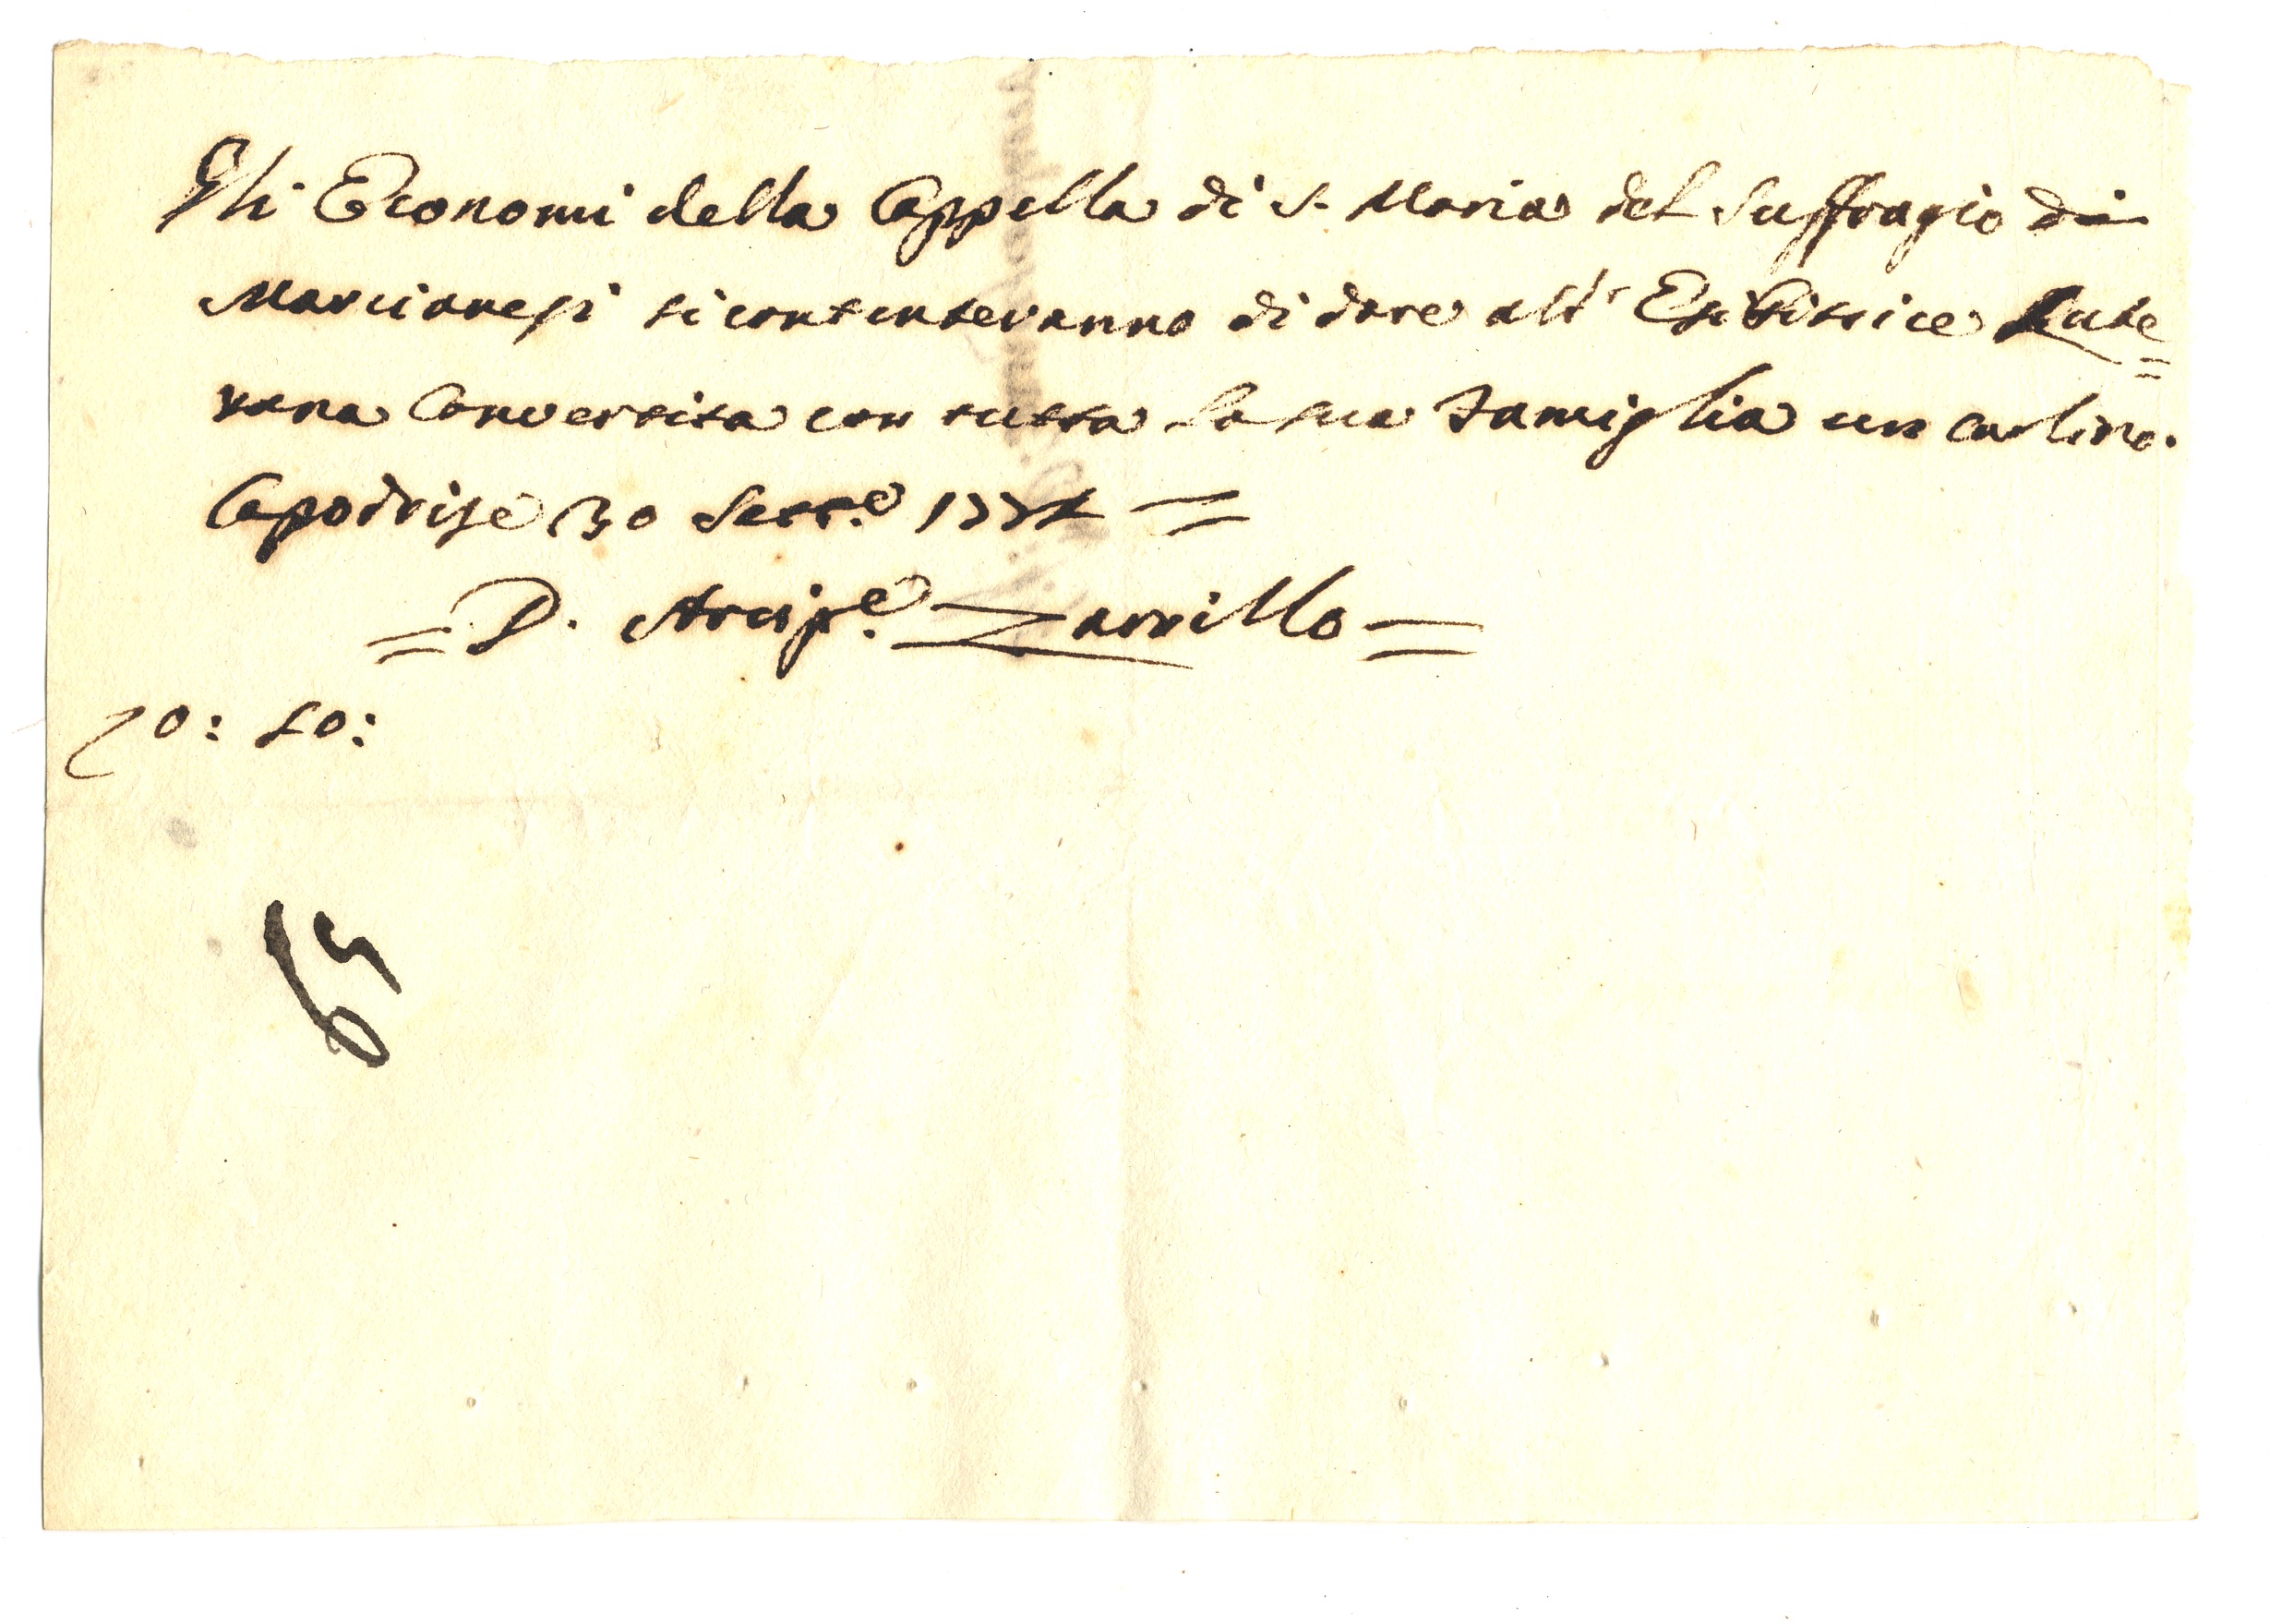 Gli Economi della Cappella di S. Maria del Suffragio di
Marcianesi si contenteranno di dare all' Esibitrice Lute=
rana Convertita con tutta la sua Famiglia un carlino.
Capodrise 30 Sett.e 1771 =
= D. Arcip.e Zarrillo =
0: 10: